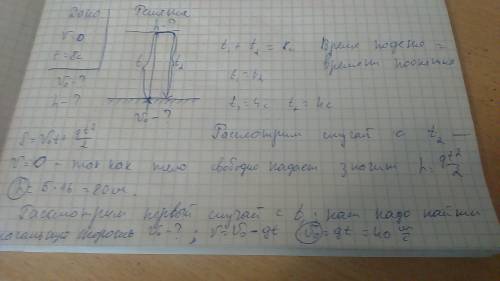 Дано Решение
v=0
t=8c
v₀-?
h-?
t₁ t₂
v₀-?
t₁+t₂=8c Время подъёма =
времени
t₁=t₂
t₁=4c t₂=4c
S=v₀t+gt²/2 Рассмотрим случай с t₂ —
v=0 - так как тело свободно падает значит h=gt²/2
h=5·16=80м.
Рассмотрим первый случай с t₁: нам надо найти
начальную скорость v₀-?; v=v₀-gt v₀=gt=40 м/с